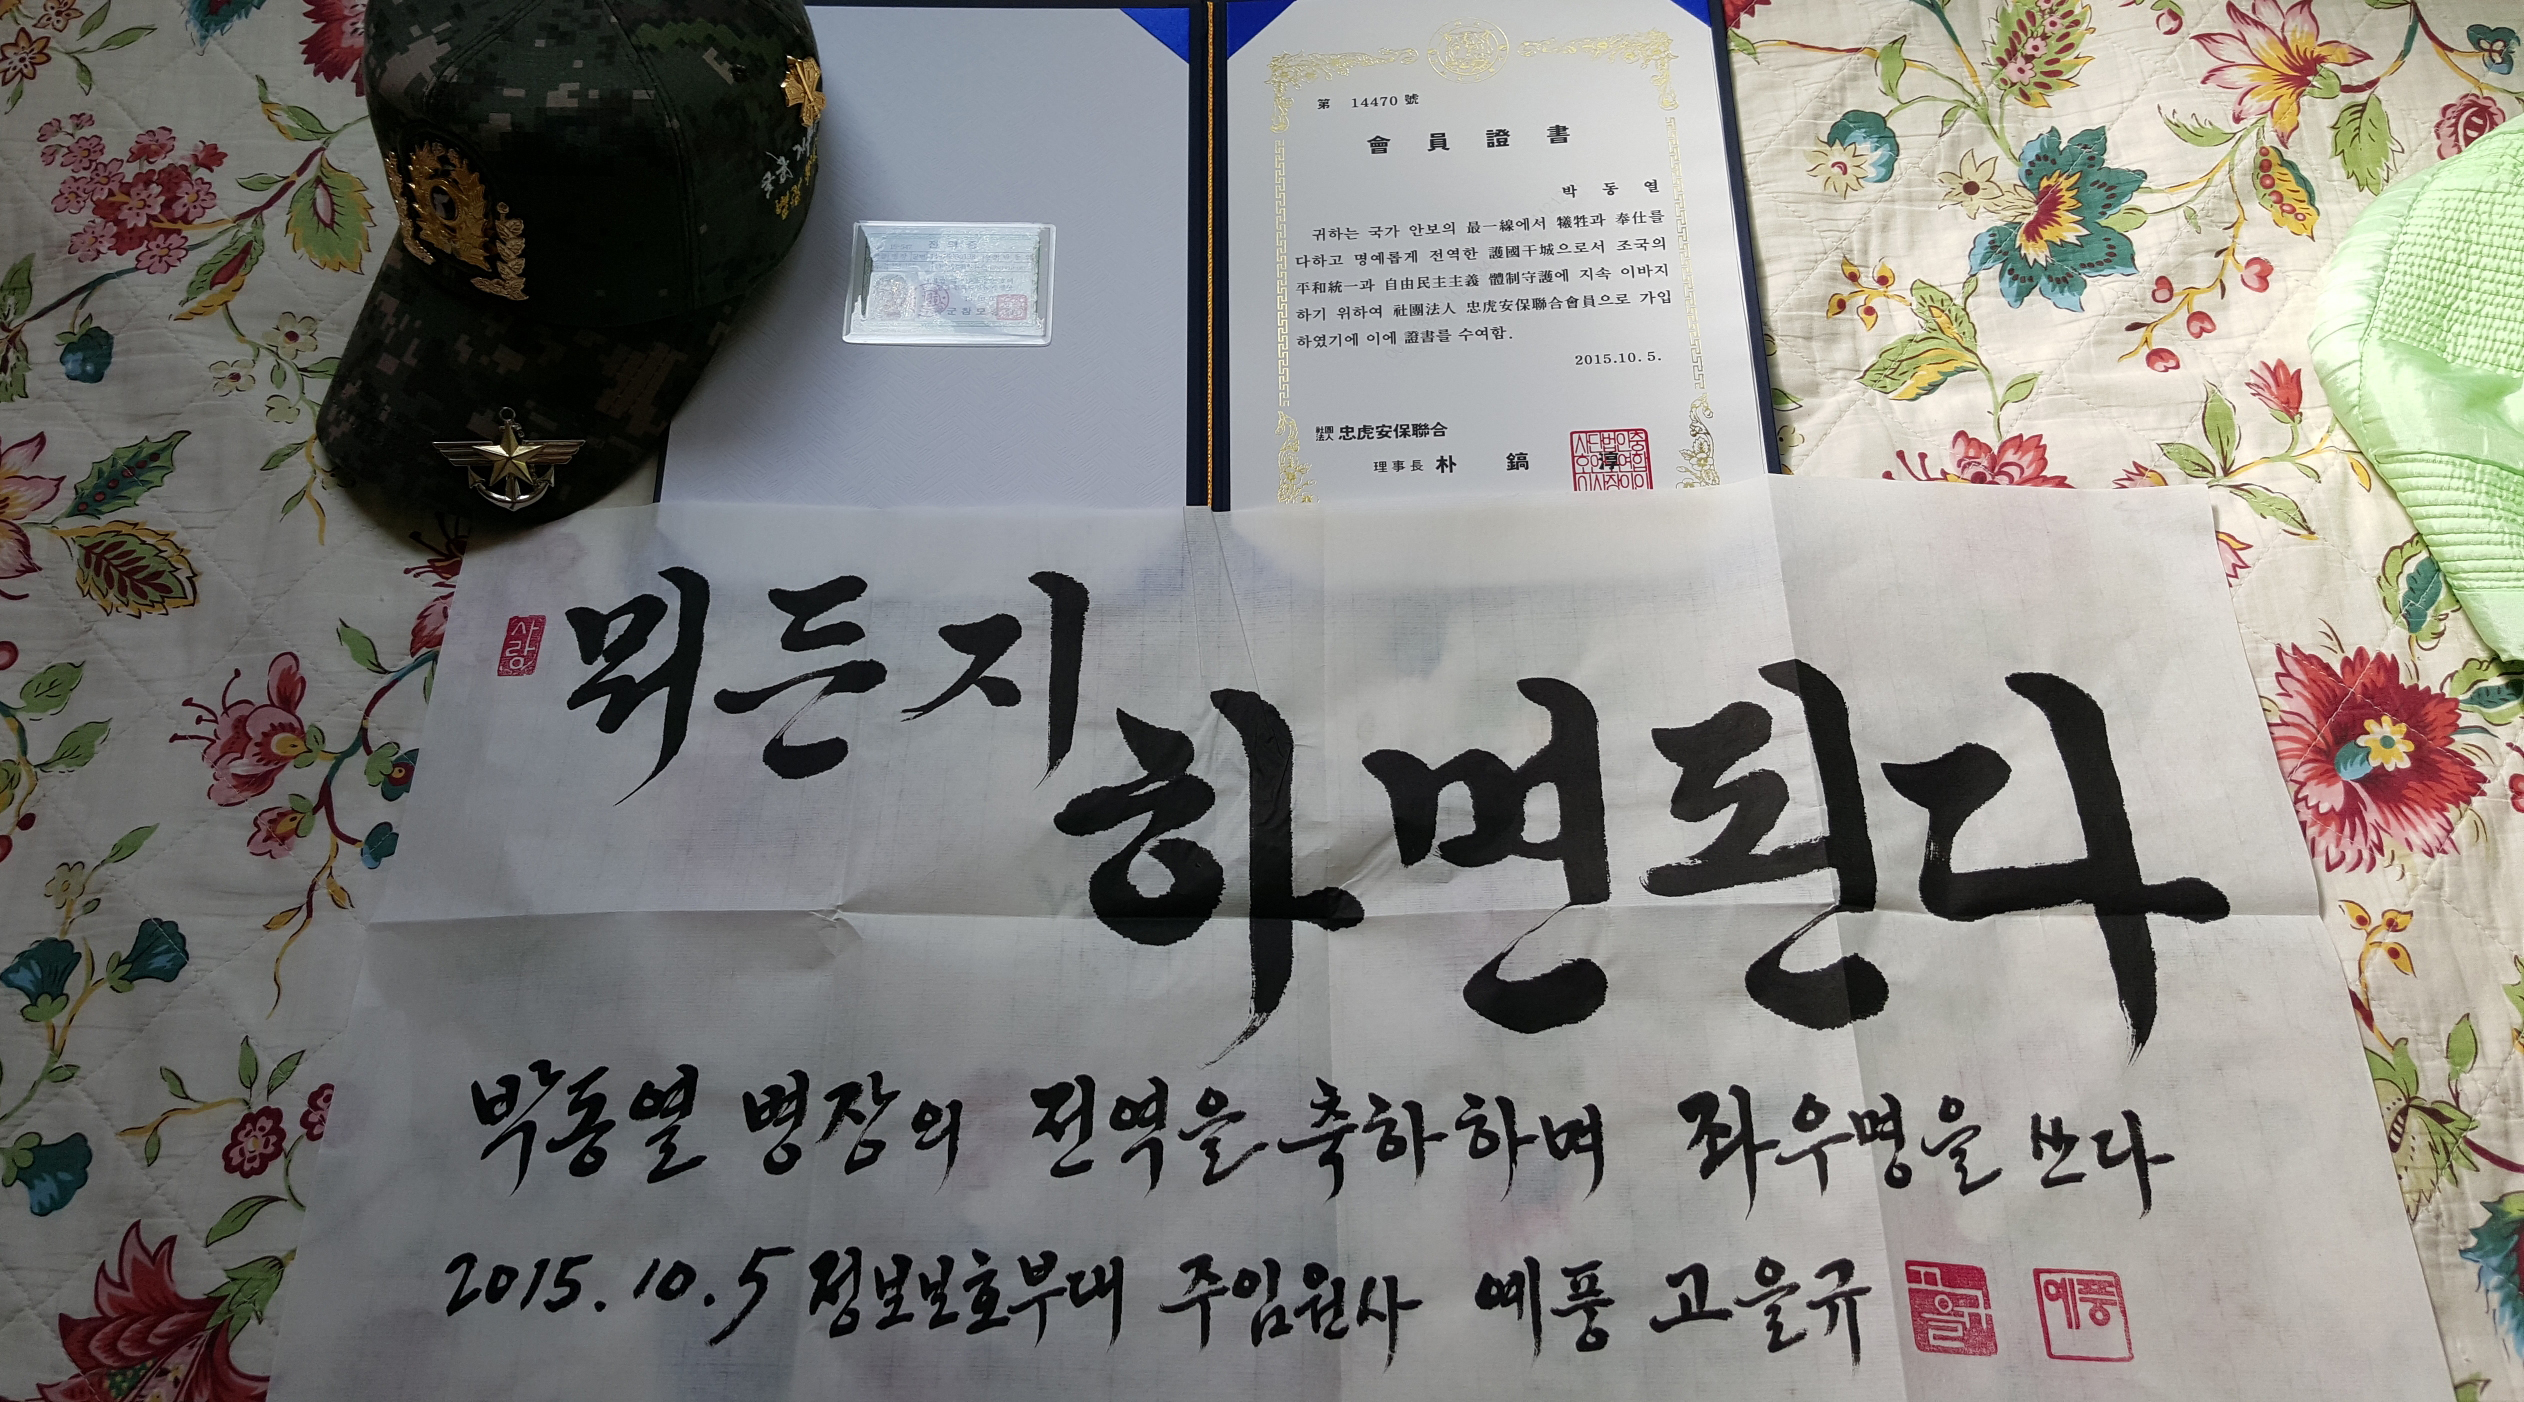 第 14470 號
會員證書
박동열
귀하는 국가 안보의 最一線에서 犧牲과 奉仕를
다하고 명예롭게 전역한 護國干城으로서 조국의
平和統一과 自由民主主義 體制守護에 지속 이바지
하기 위하여 社團法人 忠虎安保聯合會員으로 가입
하였기에 이에 證書를 수여함.
2015.10.5.
社團法人 忠虎安保聯合
理事長 朴鎬淳
전역증
사랑
뭐든지
하면된다
박동열 병장의 전역을 축하하며 좌우명을 쓰다
2015.10.5 정보보호부대 주임원사 예풍 고을규
고을규
예풍